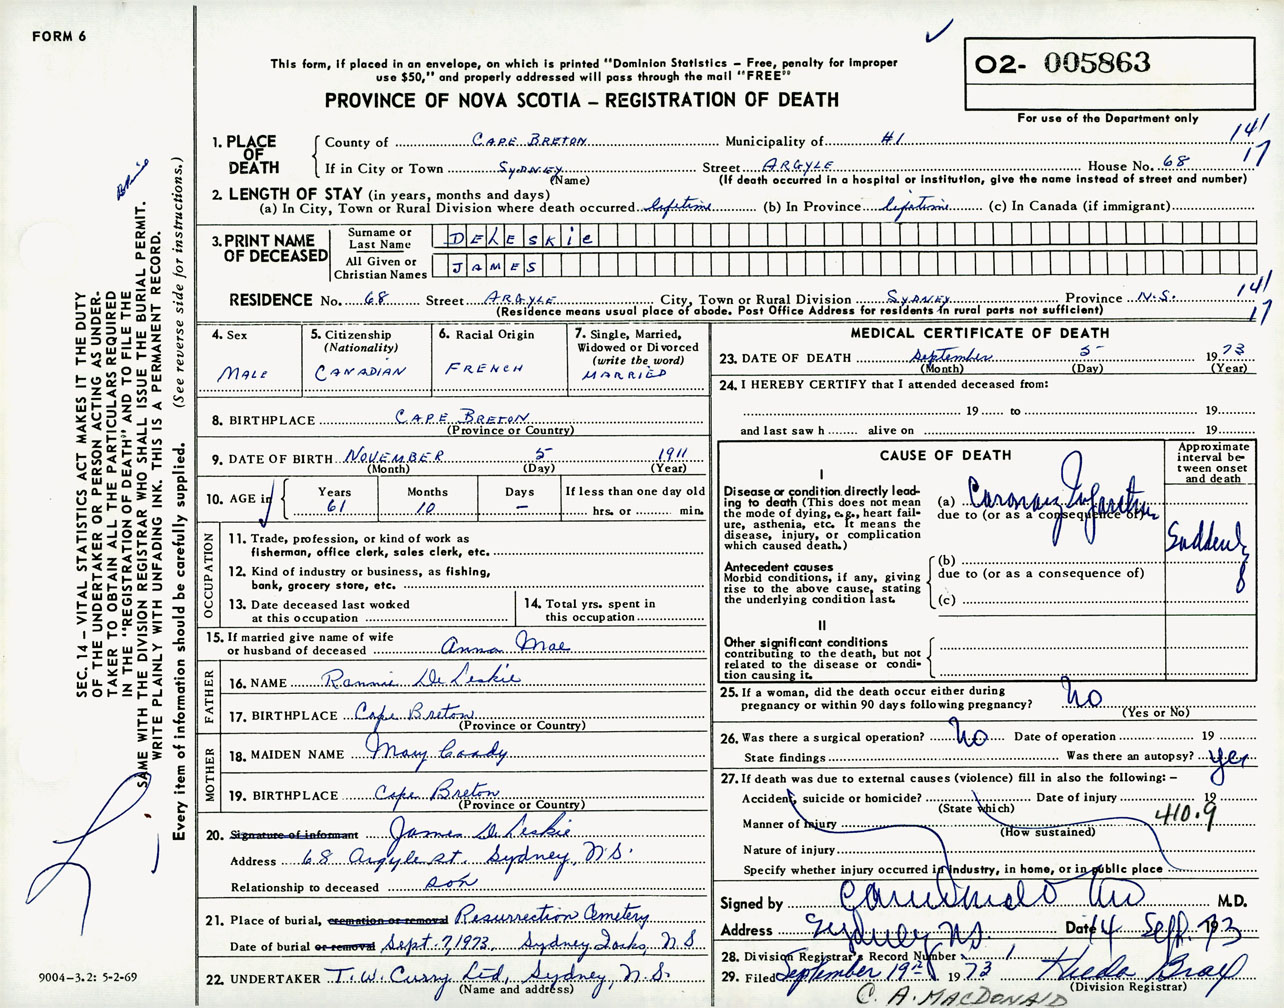 FORM 6
This form, if placed in an envelope, on which is printed "Dominion Statistics – Free, penalty for improper
use $50," and properly addressed will pass through the mail "FREE"
PROVINCE OF NOVA SCOTIA – REGISTRATION OF DEATH
02- 005863
For use of the Department only
1. PLACE OF DEATH
County of CAPE BRETON Municipality of #1 141
If in City or Town SYDNEY Street ARGYLE House No. 68 17
(Name) (If death occurred in a hospital or institution, give the name instead of street and number)
2. LENGTH OF STAY (in years, months and days)
(a) In City, Town or Rural Division where death occurred lifetime (b) In Province lifetime (c) In Canada (if immigrant)
3. PRINT NAME OF DECEASED
Surname or Last Name DeLeskie
All Given or Christian Names JAMES
RESIDENCE No. 68 Street ARGYLE City, Town or Rural Division SYDNEY Province N.S. 141
(Residence means usual place of abode. Post Office Address for residents in rural parts not sufficient) 17
4. Sex MALE
5. Citizenship (Nationality) CANADIAN
6. Racial Origin FRENCH
7. Single, Married, Widowed or Divorced (write the word) MARRIED
8. BIRTHPLACE CAPE BRETON
(Province or Country)
9. DATE OF BIRTH NOVEMBER 5 1911
(Month) (Day) (Year)
10. AGE in Years 61 Months 10 Days – If less than one day old hrs. or min.
OCCUPATION
11. Trade, profession, or kind of work as
fisherman, office clerk, sales clerk, etc.
12. Kind of industry or business, as fishing,
bank, grocery store, etc.
13. Date deceased last worked
at this occupation
14. Total yrs. spent in
this occupation
15. If married give name of wife
or husband of deceased Anna Mae
FATHER
16. NAME Rannie DeLeskie
17. BIRTHPLACE Cape Breton
(Province or Country)
MOTHER
18. MAIDEN NAME Mary Coady
19. BIRTHPLACE Cape Breton
(Province or Country)
20. Signature of informant James DeLeskie
Address 68 Argyle st. Sydney, N.S.
Relationship to deceased son
21. Place of burial, cremation or removal Resurrection Cemetery
Date of burial or removal Sept. 7, 1973, Sydney Forks, N.S
22. UNDERTAKER T. W. Curry Ltd, Sydney, N.S.
(Name and address)
MEDICAL CERTIFICATE OF DEATH
23. DATE OF DEATH September 5 1973
(Month) (Day) (Year)
24. I HEREBY CERTIFY that I attended deceased from:
19 to 19
and last saw h alive on 19
CAUSE OF DEATH
Approximate interval between onset and death
I
Disease or condition directly leading to death (This does not mean
the mode of dying, e.g., heart failure, asthenia, etc. It means the
disease, injury, or complication
which caused death.)
(a) Coronary Infarction
due to (or as a consequence of)
Suddenly
(b)
due to (or as a consequence of)
(c)
Antecedent causes
Morbid conditions, if any, giving
rise to the above cause, stating
the underlying condition last.
II
Other significant conditions
contributing to the death, but not
related to the disease or condition causing it.
25. If a woman, did the death occur either during
pregnancy or within 90 days following pregnancy? No
(Yes or No)
26. Was there a surgical operation? No Date of operation 19
State findings Was there an autopsy? yes
27. If death was due to external causes (violence) fill in also the following: –
Accident, suicide or homicide? Date of injury 19
(State which)
Manner of injury 410.9
(How sustained)
Nature of injury
Specify whether injury occurred in industry, in home, or in public place
Signed by M.D.
Address Sydney NS Date 14 Sept. 1973
28. Division Registrar's Record Number
29. Filed September 19 1973 Theda
(Division Registrar)
C. A. MACDONALD
SEC. 14 – VITAL STATISTICS ACT MAKES IT THE DUTY
OF THE UNDERTAKER OR PERSON ACTING AS UNDER-
TAKER TO OBTAIN ALL THE PARTICULARS REQUIRED
IN THE "REGISTRATION OF DEATH" AND TO FILE THE
SAME WITH THE DIVISION REGISTRAR WHO SHALL ISSUE THE BURIAL PERMIT.
WRITE PLAINLY WITH UNFADING INK. THIS IS A PERMANENT RECORD.
Every item of information should be carefully supplied. (See reverse side for instructions.)
9004-3.2: 5-2-69